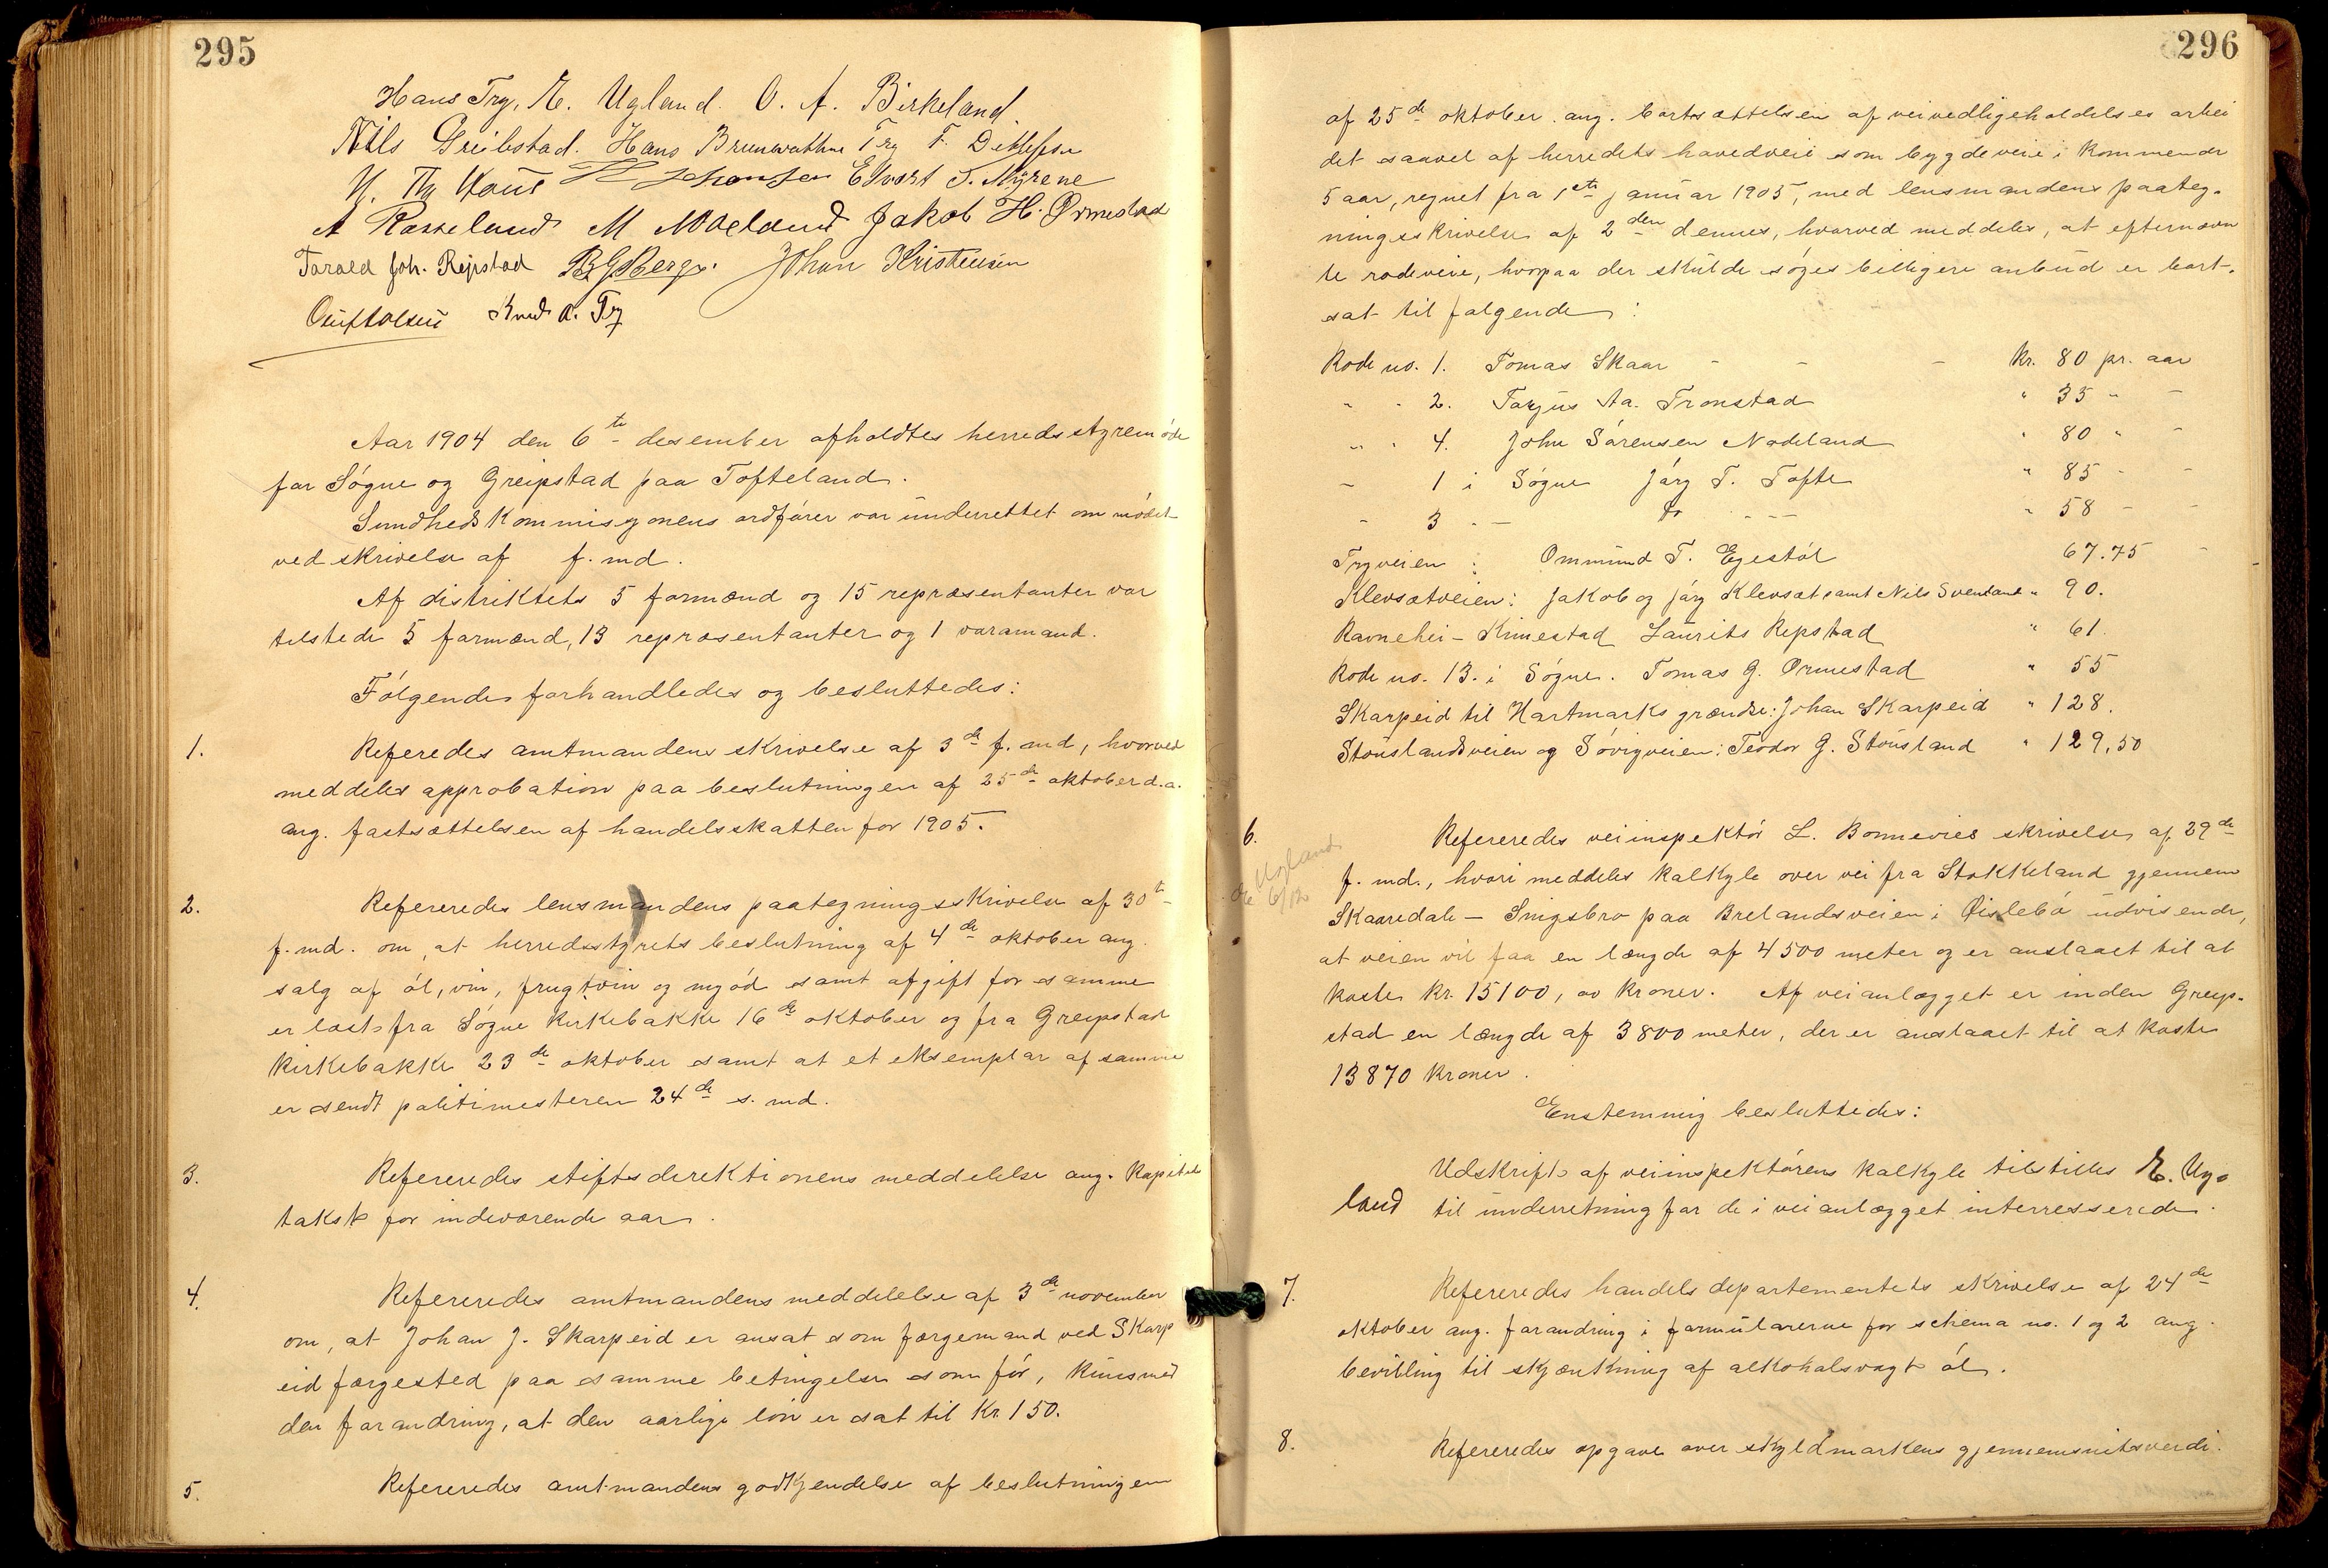 295
Hans Try, E. Ugland. O. A. Birkeland.
Nils Greibstad. Hans Brunvatthne Try F. Detlefsen
N. Th. Hoúe Johansen Edvart T. Myrene
A Rosseland M Moeland Jakob H. Ormestad
Tarald Joh. Repstad B G Berge. Johan Kristensen
Knud A. Try
Aar 1904 den 6te desember afholdtes herredsstyremöde
for Søgne og Greipstad paa Tofteland.
Sundhedskommisjonens ordfører var underrettet om mødet
ved skrivelse af f. md.
Af distriktets 5 formænd og 15 repræsentanter var
tilstede 5 formænd, 13 repræsentanter og 1 varamand.
Følgende forhandledes og besluttedes:
1. Referedes amtmandens skrivelse af 3de f. md, hvorved
meddeles approbation paa beslutningen af 25de oktober d.a.
ang. fastsættelsen af handelsskatten for 1905.
2. Refereredes lensmandens paategningsskrivelse af 30te
f. md. om, at herredsstyrets beslutning af 4de oktober ang.
salg af øl, vin, frugtvin og mjød samt afgift for samme
er læst fra Søgne kirkebakke 16de oktober og fra Greipstad
kirkebakke 23de oktober samt at et eksemplar af samme
er sendt politimesteren 24de s. md.
3. Refereredes stiftsdirektionens meddelelse ang. kapitels
takst for indeværende aar.
4. Refereredes amtmandens meddelelse af 3de november
om, at Johan J. Skarpeid er ansat som færgemand ved Skarp
eid færgested paa samme betingelser som før, kuns med
den forandring, at den aarlige løn er sat til Kr. 150.
5. Refereredes amtmandens godkjendelse af beslutningen
296
af 25de oktober ang. bortsættelsen af veivedligeholdelses arbei
det saavel af herredets hovedveie som bygdeveie i kommende
5 aar, regnet fra 1ste januar 1905, med lensmandens paateg-
ningsskrivelse af 2den dennes, hvorved meddeles, at efternævn
te rodeveie, hvorpaa der skulde søges billigere anbud er bort-
sat til følgende:
Rode no. 1. Tomas Skaar - - - kr. 80 pr. aar
" " 2. Tarjus Aa. Tronstad " 35 " -
" " 4. John Sørensen Nodeland " 80 " -
" 1 i Søgne Jørg T. Tofte " 85 - -
" 3 - - Do - - - " 58 - -
Tryveien : Ommund T. Egestøl 67.75 -
Klevsetveien: Jakob og Jørg Klevsæt samt Nils Svendane " 90.
Ravnehei - Kimestad Laurits Repstad " 61.
Rode no. 13. i Søgne. Tomas G. Ormestad " 55
Skarpeid til Hartmarks grændse: Johan Skarpeid " 128.
Stouslandsveien og Søvigveien: Teodor G. Stousland " 129,50
Ugland
6/12
6. Refereredes veiinspektør L. Bonnevies skrivelse af 29de
f. md., hvori meddeles kalkyle over vei fra Stokkeland gjennem
Skaaredale - Snigsbro paa Brelandsveien i Øislebø udvisende,
at veien vil faa en længde af 4500 meter og er anslaaet til at
koste kr. 15100,00 kroner. Af veianlægget er inden Greip-
stad en længde af 3800 meter, der er anslaaet til at koste
13870 kroner.
Enstemmig besluttedes:
Udskrift af veiinspektørens kalkyle tilstilles E. Ug-
land til underretning for de i veianlægget interresserede.
7. Refereredes handelsdepartementets skrivelse af 24de
oktober ang. forandring i formularerne for schema no. 1 og 2 ang.
bevilling til skjænkning af alkoholsvagt øl.
8. Refereredes opgave over skyldmarkens gjennemsnitsverdi.